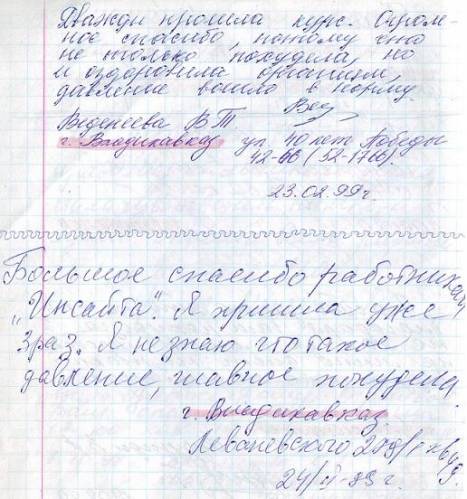 Дважды прошла курс. Огром-
ное спасибо, потому что
не только похудела, но
и оздоровила организм,
давление вошло в норму.
Веденеева В Т
г. Владикавказ ул 40 лет Победы
42-66 (52-1766).
23.02.99г.
Большое спасибо работникам
„Инсайта". Я пришла уже
3 раз. Я не знаю что такое
давление, главное похудела.
г. Владикавказ
Леваневского